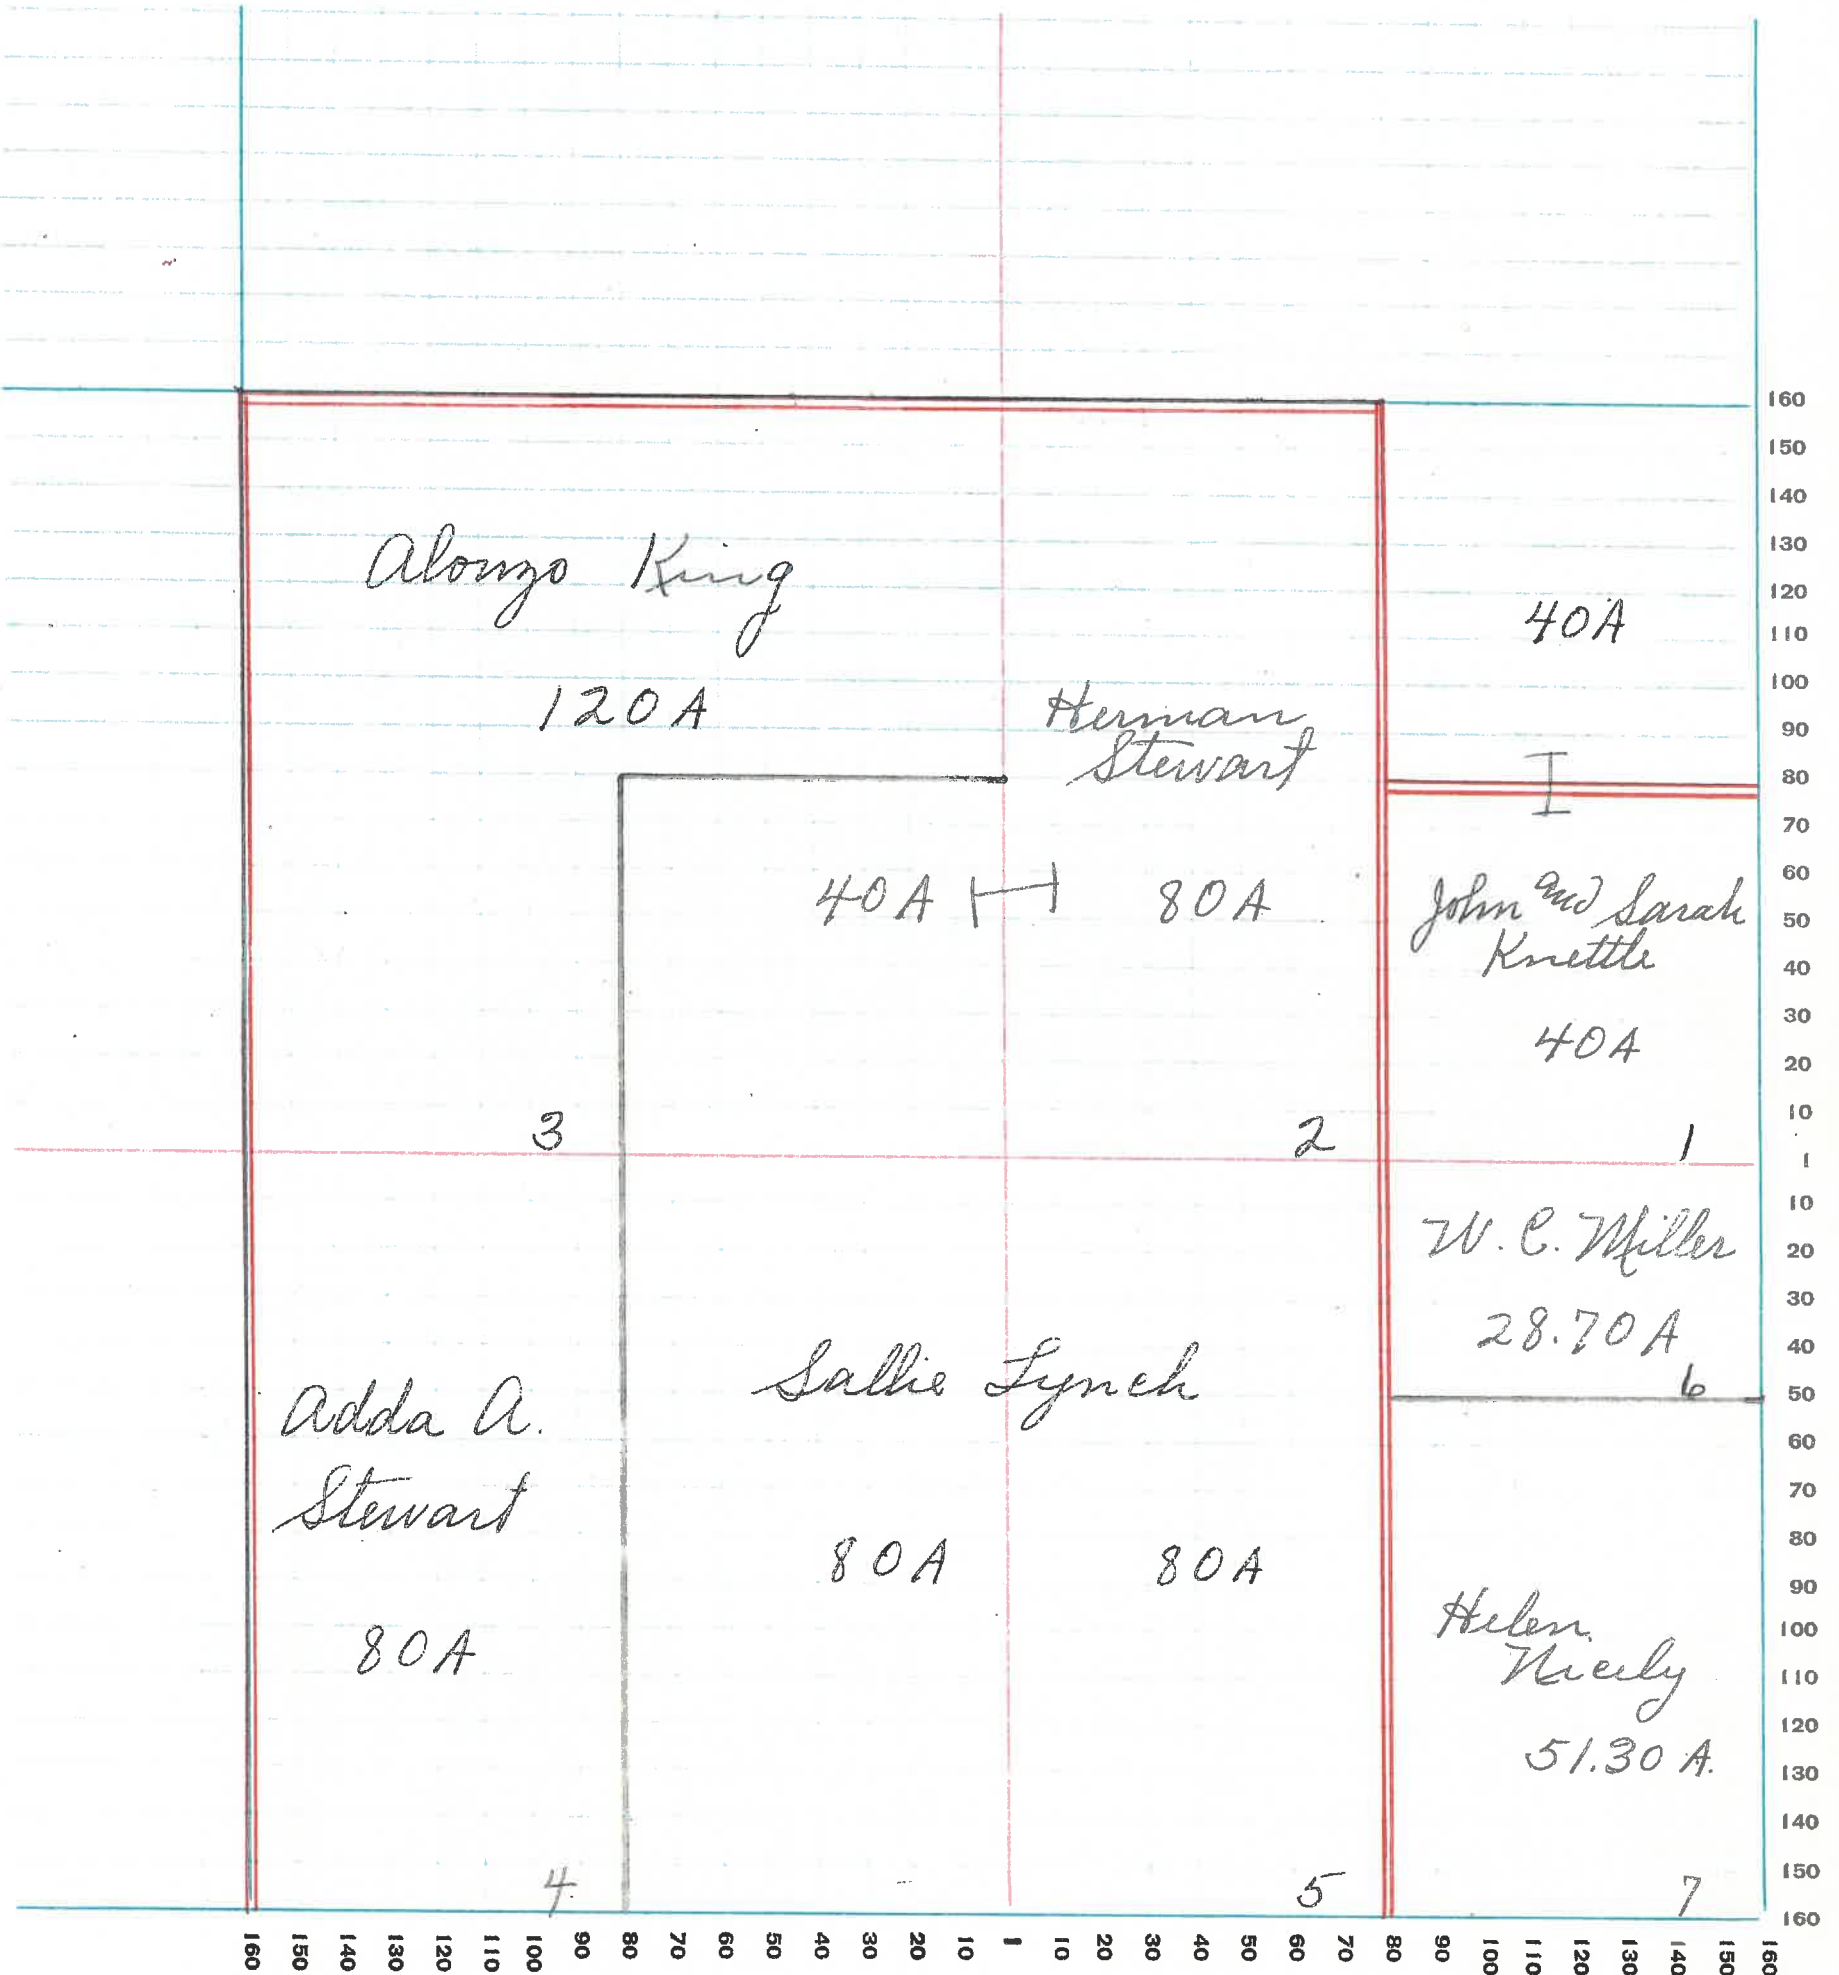 Alonzo King
120A
Herman
Stewart
40A
80A
40A
John and Sarah
Knettle
40A
3
2
1
W. C. Miller
28.70 A
6
Adda A.
Stewart
80A
Sallie Lynch
80A
80A
Helen
Nicely
51.30 A.
4
5
7
160
150
140
130
120
110
100
90
80
70
60
50
40
30
20
10
1
10
20
30
40
50
60
70
80
90
100
110
120
130
140
150
160
160 150 140 130 120 110 100 90 80 70 60 50 40 30 20 10 1 10 20 30 40 50 60 70 80 90 100 110 120 130 140 150 160